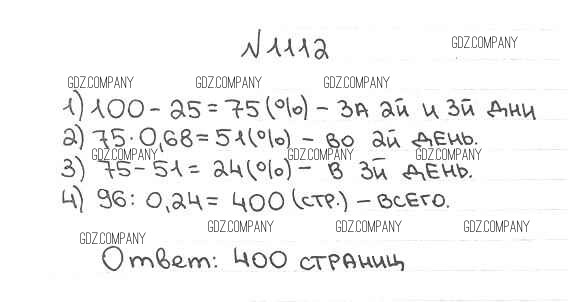 N1112
GDZ.COMPANY
GDZ.COMPANY GDZ.COMPANY GDZ.COMPANY
1) 100 - 25 = 75 (%) - ЗА 2Й И 3Й ДНИ
2) 75 · 0,68 = 51 (%) - ВО 2Й ДЕНЬ.
GDZ.COMPANY GDZ.COMPANY GDZ.COMPANY
3) 75 - 51 = 24 (%) - В 3Й ДЕНЬ.
4) 96 : 0,24 = 400 (СТР.) - ВСЕГО.
GDZ.COMPANY GDZ.COMPANY GDZ.COMPANY GDZ.COMPANY
Ответ: 400 СТРАНИЦ